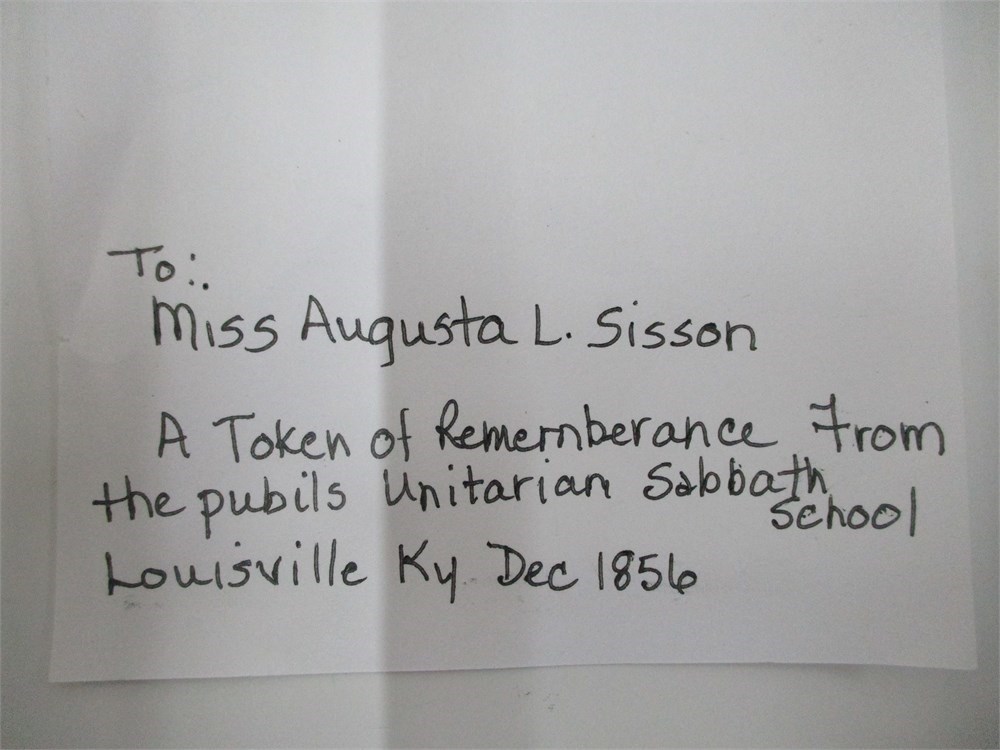 To:.
Miss Augusta L. Sisson
A Token of Rememberance From
the pubils Unitarian Sabbath
School
Louisville Ky Dec 1856